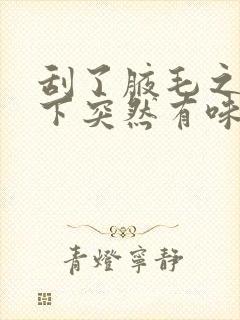 刮了腋毛之
下突然有味
青燈寧静